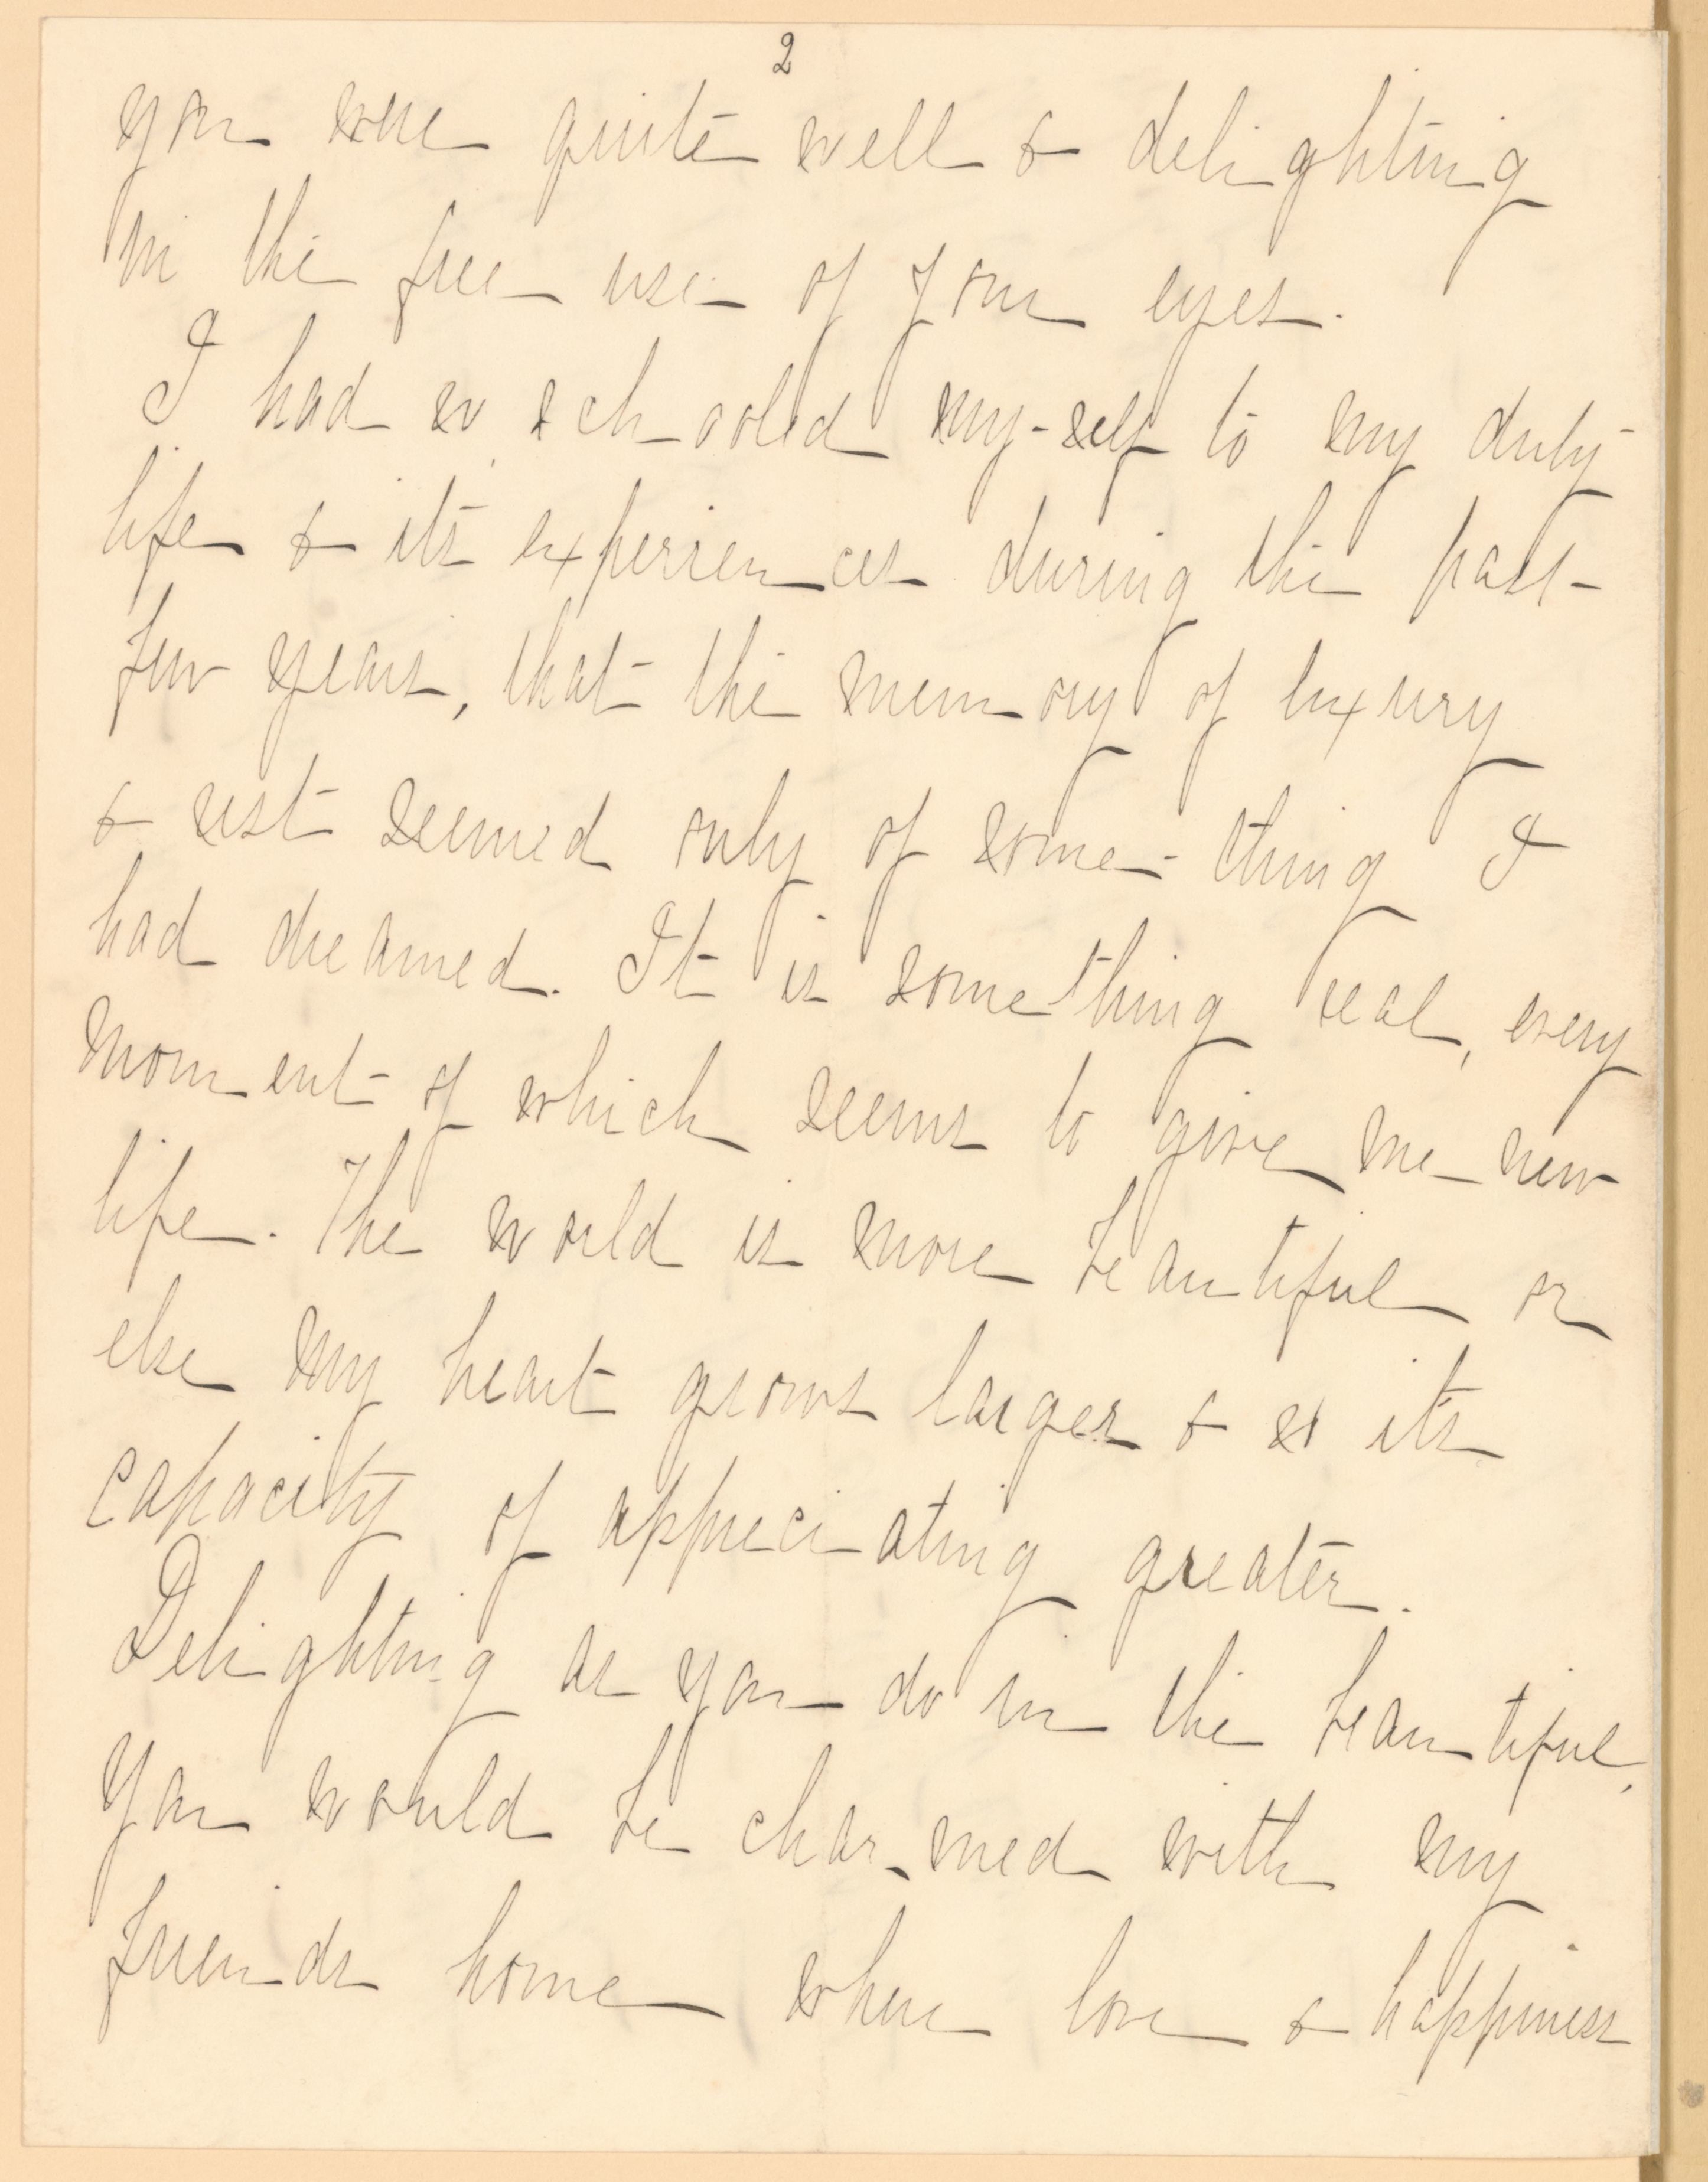 2
you were quite well & delighting
in the free use of your eyes.
I had so schooled my-self to my duty
life & its experiences during the past
few years, that the memory of luxury
& rest seemed only of some-thing I
had dreamed. It is something real, every
moment of which seems to give me new
life. The world is more beautiful or
else my heart grows larger & so its
capacity of appreciating greater.
Delighting as you do in the beautiful,
you would be charmed with my
friends home where love & happiness